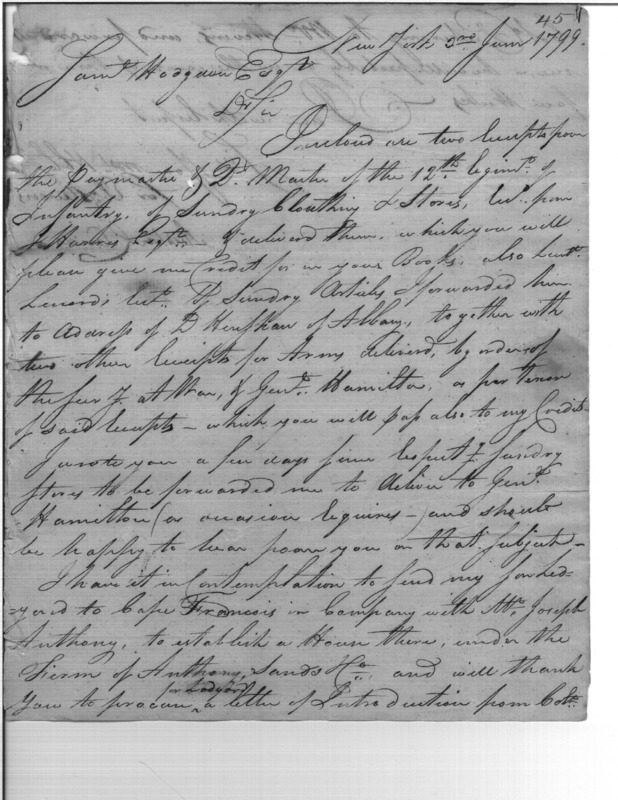 45
New York 3rd June 1799.
Saml. Hodgdon Esqr.
Dr Sir
Inclosed are two receipts from
the Paymaster & Qr. Master of the 12th regimt. of
Infantry, of Sundry Cloathing & Stores, from
J Harris Esqr. & deliverd them, which you will
please give me Credit for in your Books, also Lieut.
Lenords rect. of Sundry Articles, I forwarded him
to Address of D Henshaw of Albany, together with
two other receipts for Arms deliverd, by order of
the Secry. at War, & Genl. Hamilton, as per Tenor
of said receipts – which you will pass also to my Credit –
I wrote you a few days since respectg. sundry
stores to be forwarded me to deliver to Genl.
Hamilton (as occasion requires –) and should
be happy to hear from you on that Subject –
I have it in Contemplation to send my son Led-
=yard to Cape Francois in Company with Mr. Joseph
Anthony, to establish a House there, under the
Firm of Anthony, Sands & Co., and will thank
for Ledyard
you to procure ^ a letter of Introduction from Colo.